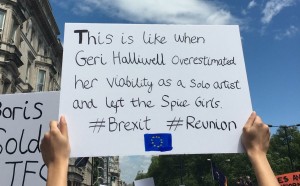 This is like when
Geri Halliwell overestimated
her viability as a solo artist
and left the Spice Girls.
#Brexit #Reunion
Boris
Sold